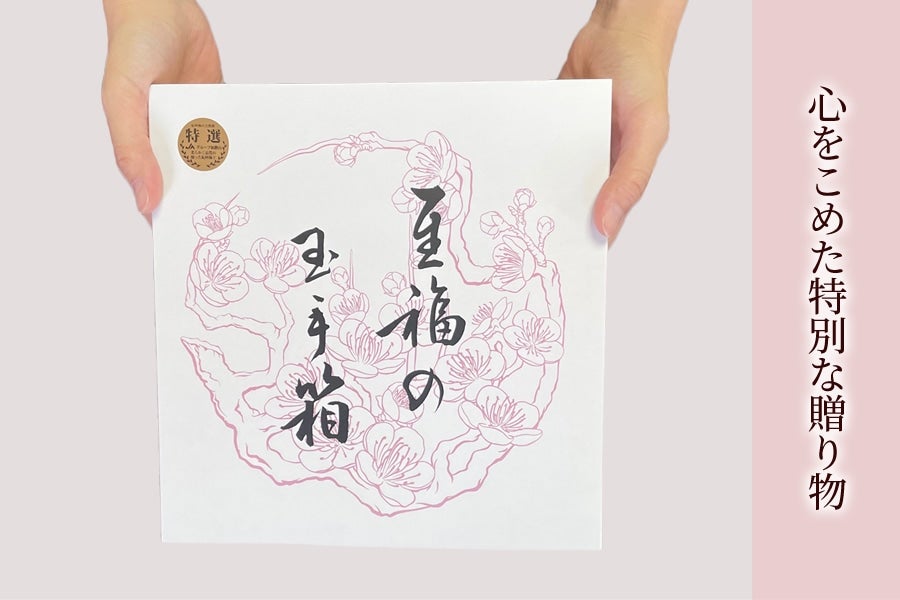 心をこめた特別な贈り物
至福の
玉手箱
特選